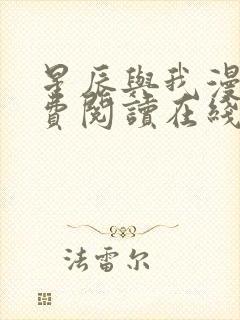 星辰與我漫
費閱讀在綫
法雷尔